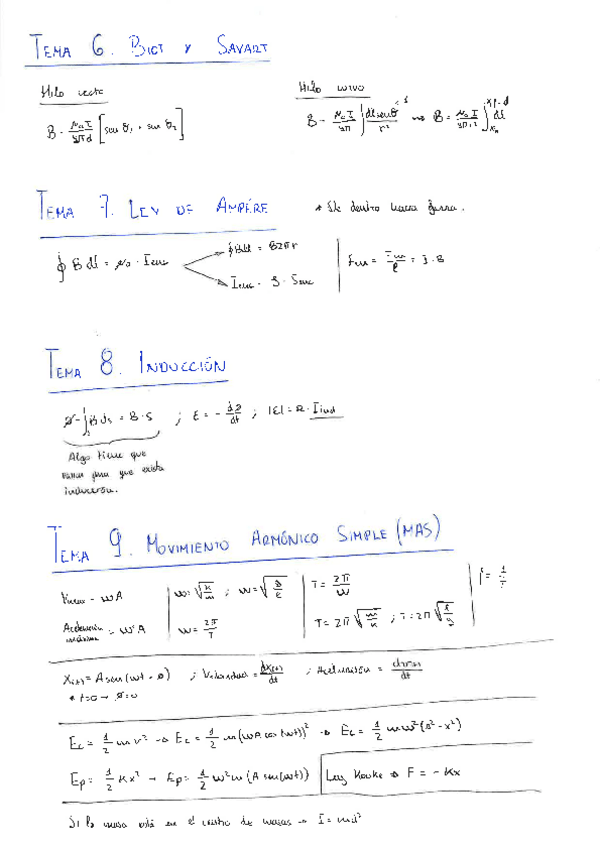 TEMA 6. BIOT Y SAVART
Hilo recto
Hilo curvo
B = μ₀I/4πd [sen θ₁ + sen θ₂]
B = μ₀I/4π ∫ dl senθ/r² → B = μ₀I/4πr² ∫ dl
TEMA 7. LEY DE AMPÉRE
* Ele dentro hacia fuera.
∮ B dl = μ₀ · Ienc
∮ B dl = B2πr
Ienc = J · Senc
Fm = Fm/l = I · B
TEMA 8. INDUCCIÓN
Ø = ∫ B ds = B · S ; ε = - dØ/dt ; |ε| = R · Iind
Algo tiene que
variar para que exista
inducción.
TEMA 9. MOVIMIENTO ARMÓNICO SIMPLE (MAS)
Vmax = wA
w = √k/m ; w = √g/l
T = 2π/w
f = 1/T
Aceleración
máxima = w²A
w = 2π/T
T = 2π √m/k ; T = 2π √l/g
X(t) = A sen (wt + Ø) ; Velocidad = dx(t)/dt ; Aceleración = dv(t)/dt
* t=0 → Ø=0
Ec = 1/2 m v² → Ec = 1/2 m (wA cos (wt))² → Ec = 1/2 m w² (A² - x²)
Ep = 1/2 Kx² → Ep = 1/2 w² m (A sen(wt))
Ley Hooke → F = - Kx
Si la masa está en el centro de masas → I = md²